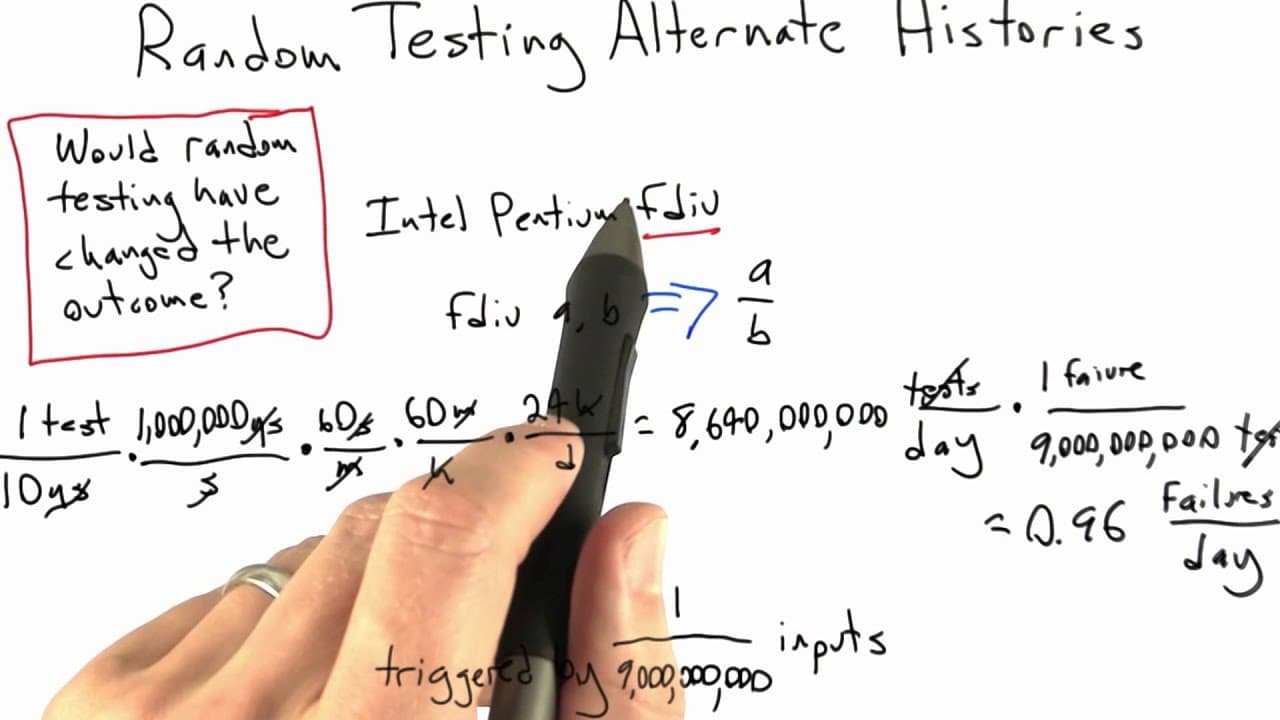 Random Testing Alternate Histories
Would random
testing have
changed the
outcome?
Intel Pentium fdiv
fdiv a, b ⇒ a/b
1 test/10 μs · 1,000,000 μs/s · 60s/m · 60m/h · 24h/d = 8,640,000,000 tests/day · 1 faiure/9,000,000,000
= 0.96 Failures/day
triggered by 1/9,000,000,000 inputs